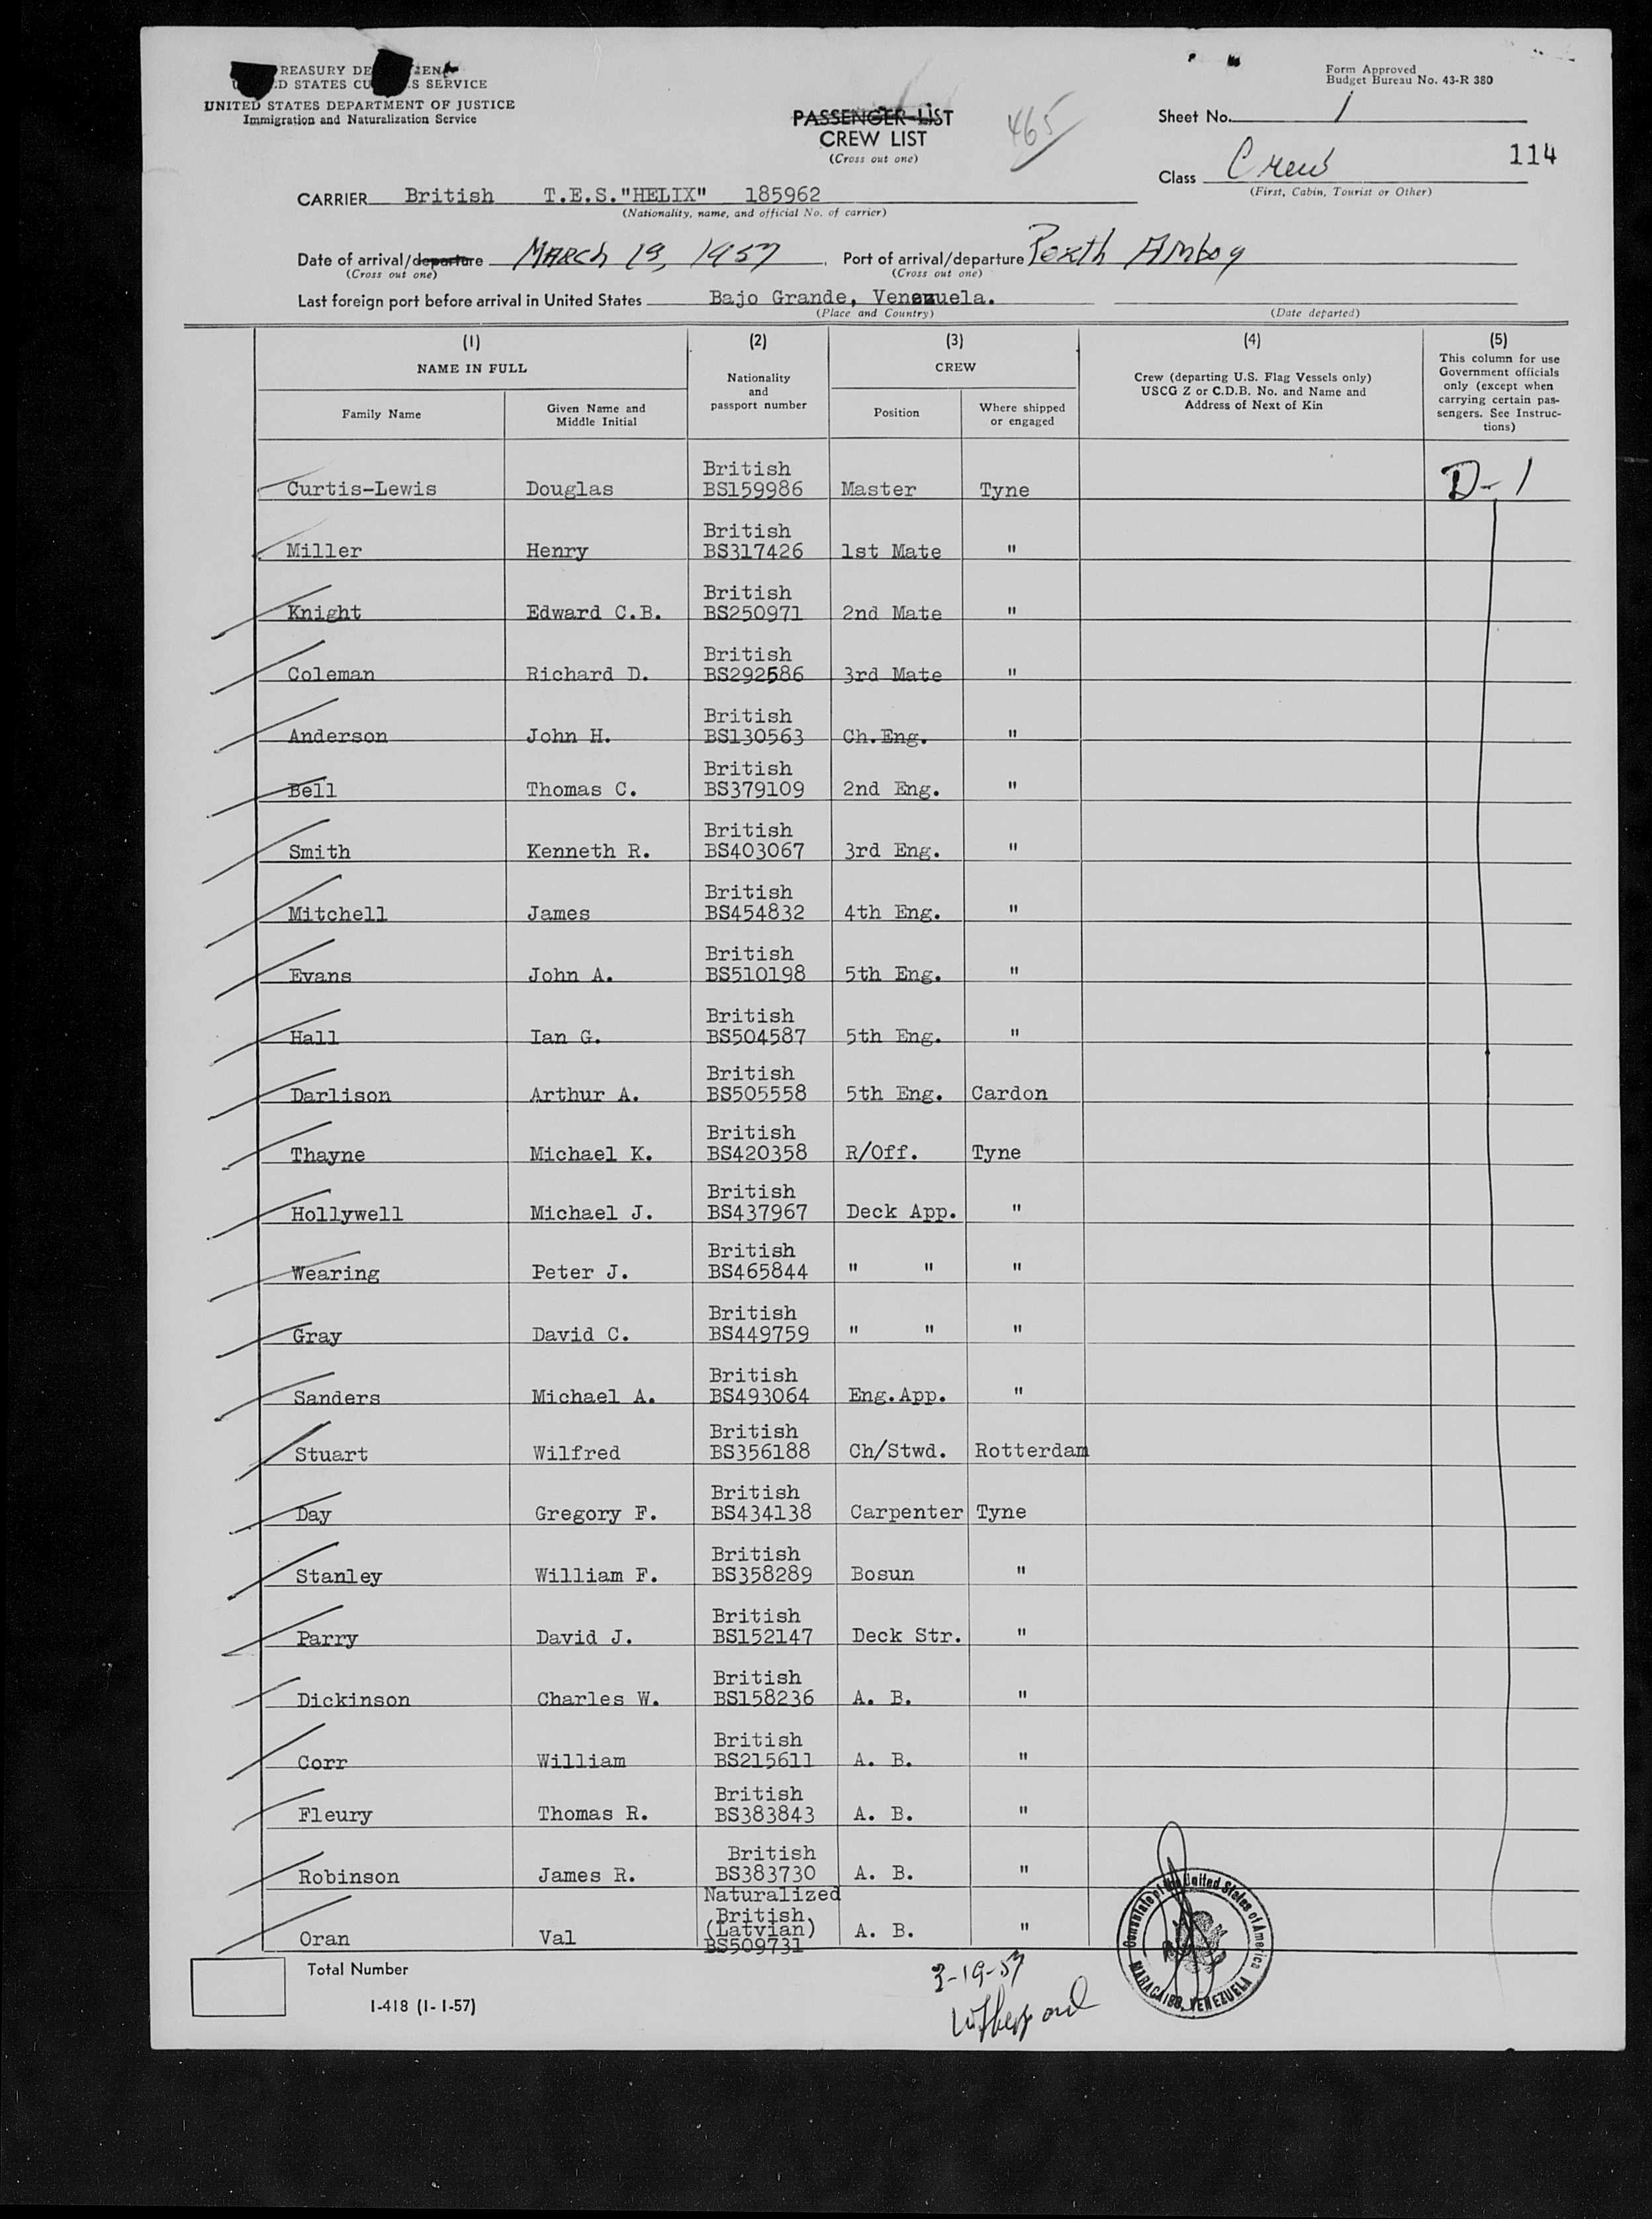 REASURY DE
D STATES CU S SERVICE
UNITED STATES DEPARTMENT OF JUSTICE
Immigration and Naturalization Service
PASSENGER LIST
CREW LIST
(Cross out one)
465
Form Approved
Budget Bureau No. 43-R 380
Sheet No. 1
114
Class Crew
(First, Cabin, Tourist or Other)
CARRIER British T.E.S."HELIX" 185962
(Nationality, name, and official No. of carrier)
Date of arrival/departure MARCH 19, 1957 Port of arrival/departure Perth Amboy
(Cross out one) (Cross out one)
Last foreign port before arrival in United States Bajo Grande, Venezuela.
(Place and Country) (Date departed)
(1) (2) (3) (4) (5)
NAME IN FULL
Family Name
Given Name and
Middle Initial
Nationality
and
passport number
CREW
Position
Where shipped
or engaged
Crew (departing U.S. Flag Vessels only)
USCG Z or C.D.B. No. and Name and
Address of Next of Kin
This column for use
Government officials
only (except when
carrying certain pas-
sengers. See Instruc-
tions)
British
Curtis-Lewis Douglas BS159986 Master Tyne D-1
British
Miller Henry BS317426 1st Mate "
British
Knight Edward C.B. BS250971 2nd Mate "
British
Coleman Richard D. BS292586 3rd Mate "
British
Anderson John H. BS130563 Ch.Eng. "
British
Bell Thomas C. BS379109 2nd Eng. "
British
Smith Kenneth R. BS403067 3rd Eng. "
British
Mitchell James BS454832 4th Eng. "
British
Evans John A. BS510198 5th Eng. "
British
Hall Ian G. BS504587 5th Eng. "
British
Darlison Arthur A. BS505558 5th Eng. Cardon
British
Thayne Michael K. BS420358 R/Off. Tyne
British
Hollywell Michael J. BS437967 Deck App. "
British
Wearing Peter J. BS465844 " " "
British
Gray David C. BS449759 " " "
British
Sanders Michael A. BS493064 Eng.App. "
British
Stuart Wilfred BS356188 Ch/Stwd. Rotterdam
British
Day Gregory F. BS434138 Carpenter Tyne
British
Stanley William F. BS358289 Bosun "
British
Parry David J. BS152147 Deck Str. "
British
Dickinson Charles W. BS158236 A. B. "
British
Corr William BS215611 A. B. "
British
Fleury Thomas R. BS383843 A. B. "
British
Robinson James R. BS383730 A. B. "
Naturalized
British
(Latvian)
Oran Val BS509731 A. B. "
Total Number
I-418 (1-1-57)
3-19-57
Consulate of the United States of America
MARACAIBO, VENEZUELA